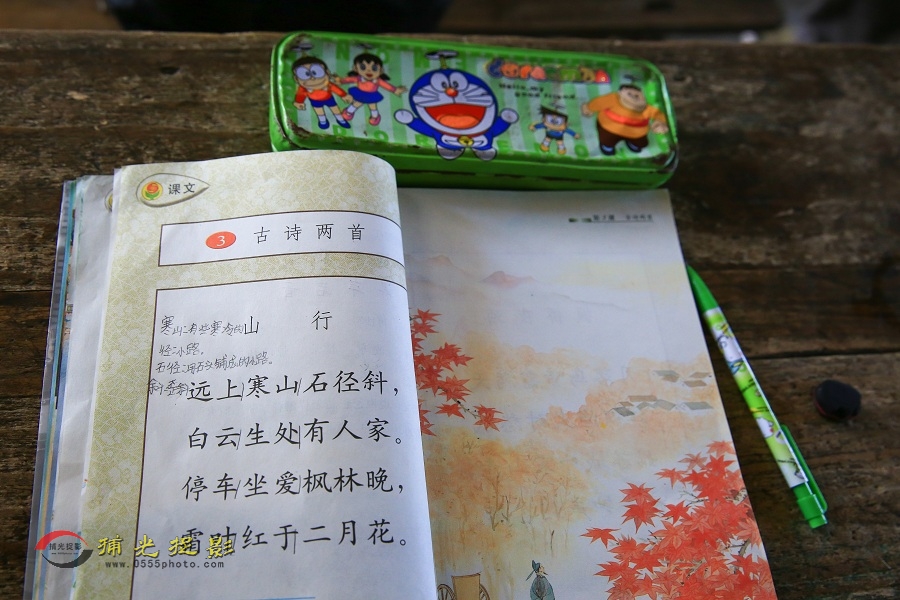 Doraemon
Hello, my
good friend
课文
3 古诗两首
山 行
寒山:有些寒冷的
径:小路。
石径:用石头铺成的小路。
远上寒山石径斜,
白云生处有人家。
停车坐爱枫林晚,
霜叶红于二月花。
捕光捉影
捕光捉影
www.0555photo.com